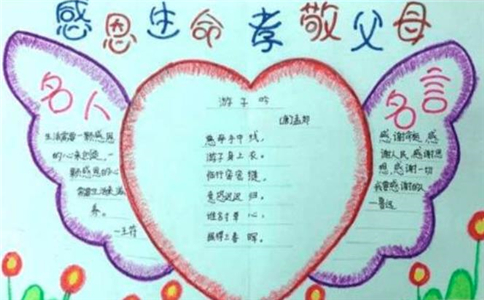 感恩生命 孝敬父母
名人
生活需要一颗感恩
的心来创造,一
颗感恩的心
需要生活来滋
养。
—王符
游子吟
(唐)孟郊
慈母手中线,
游子身上衣。
临行密密缝,
意恐迟迟归。
谁言寸草心,
报得三春晖。
名言
感谢命运,感
谢人民,感谢思
想,感谢一切
我要感谢的人
—鲁迅